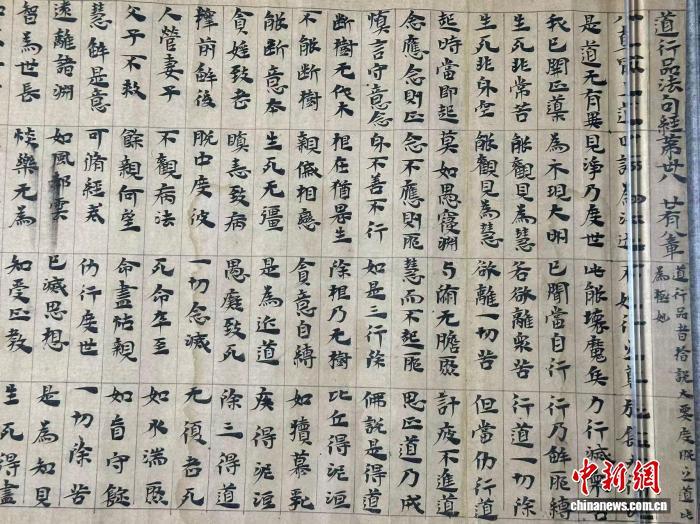 道行品法句經第卅八 廿有八章 道行品者旨說大要度脫之道此
為極妙
是道无有異 見淨乃度世 此能壞魔兵 力行滅
我已開正道 為示現大明 已聞當自行 行乃解邪縛
生死非常苦 能觀見為慧 若欲離衆苦 行道一切除
生死非身空 能觀見為慧 欲離一切苦 但當仂行道
起時當即起 莫如愚寑淵 与術无膽聚 計疲不進道
念應念則正 念不應則邪 慧而不起邪 思正道乃成
慎言守意念 身不善不行 如是三行除 佛說是得道
斷樹无伐木 根在猶畏生 除根乃无樹 比丘得泥洹
不能斷樹 親慽相戀 貪意自縛 如犢慕乳
能斷意本 生死无彊 是為近道 疾得泥洹
貪婬致老 瞋恚致病 愚癡致死 除三得道
釋前解後 脫中度彼 一切念滅 无復老死
人營妻子 不觀病法 死命卒至 如水湍聚
父子不救 餘親何望 命盡怙親 如盲守錠
慧解是意 可脩經戒 仂行度世 一切除苦
遠離諸淵 如風却雲 已滅思想 是為知見
智為世長 惔樂无為 知受正教 生死得盡
中新网
chinanews.com